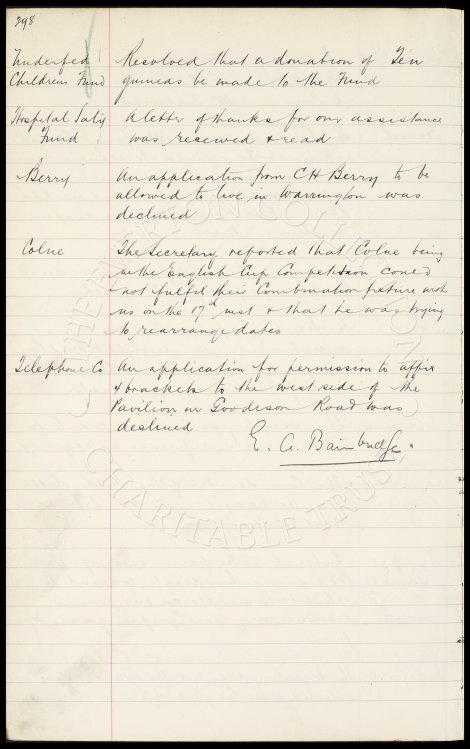 298
Underfed Resolved that a donation of Ten
Childrens Fund guineas be made to the Fund
Hospital Saty A letter of thanks for our assistance
Fund was received & read
Berry An application from C H Berry to be
allowed to live in Warrington was
declined
Colne The Secretary reported that Colne being
in the English Cup Competition could
not fulfil their Combination fixture with
us on the 17th inst & that he was trying
to rearrange dates
Telephone Co An application for permission to affix
4 brackets to the west side of the
Pavilion in Goodison Road was
declined
E. A. Bainbridge.
THE EVERTON COLLECTION
CHARITABLE TRUST